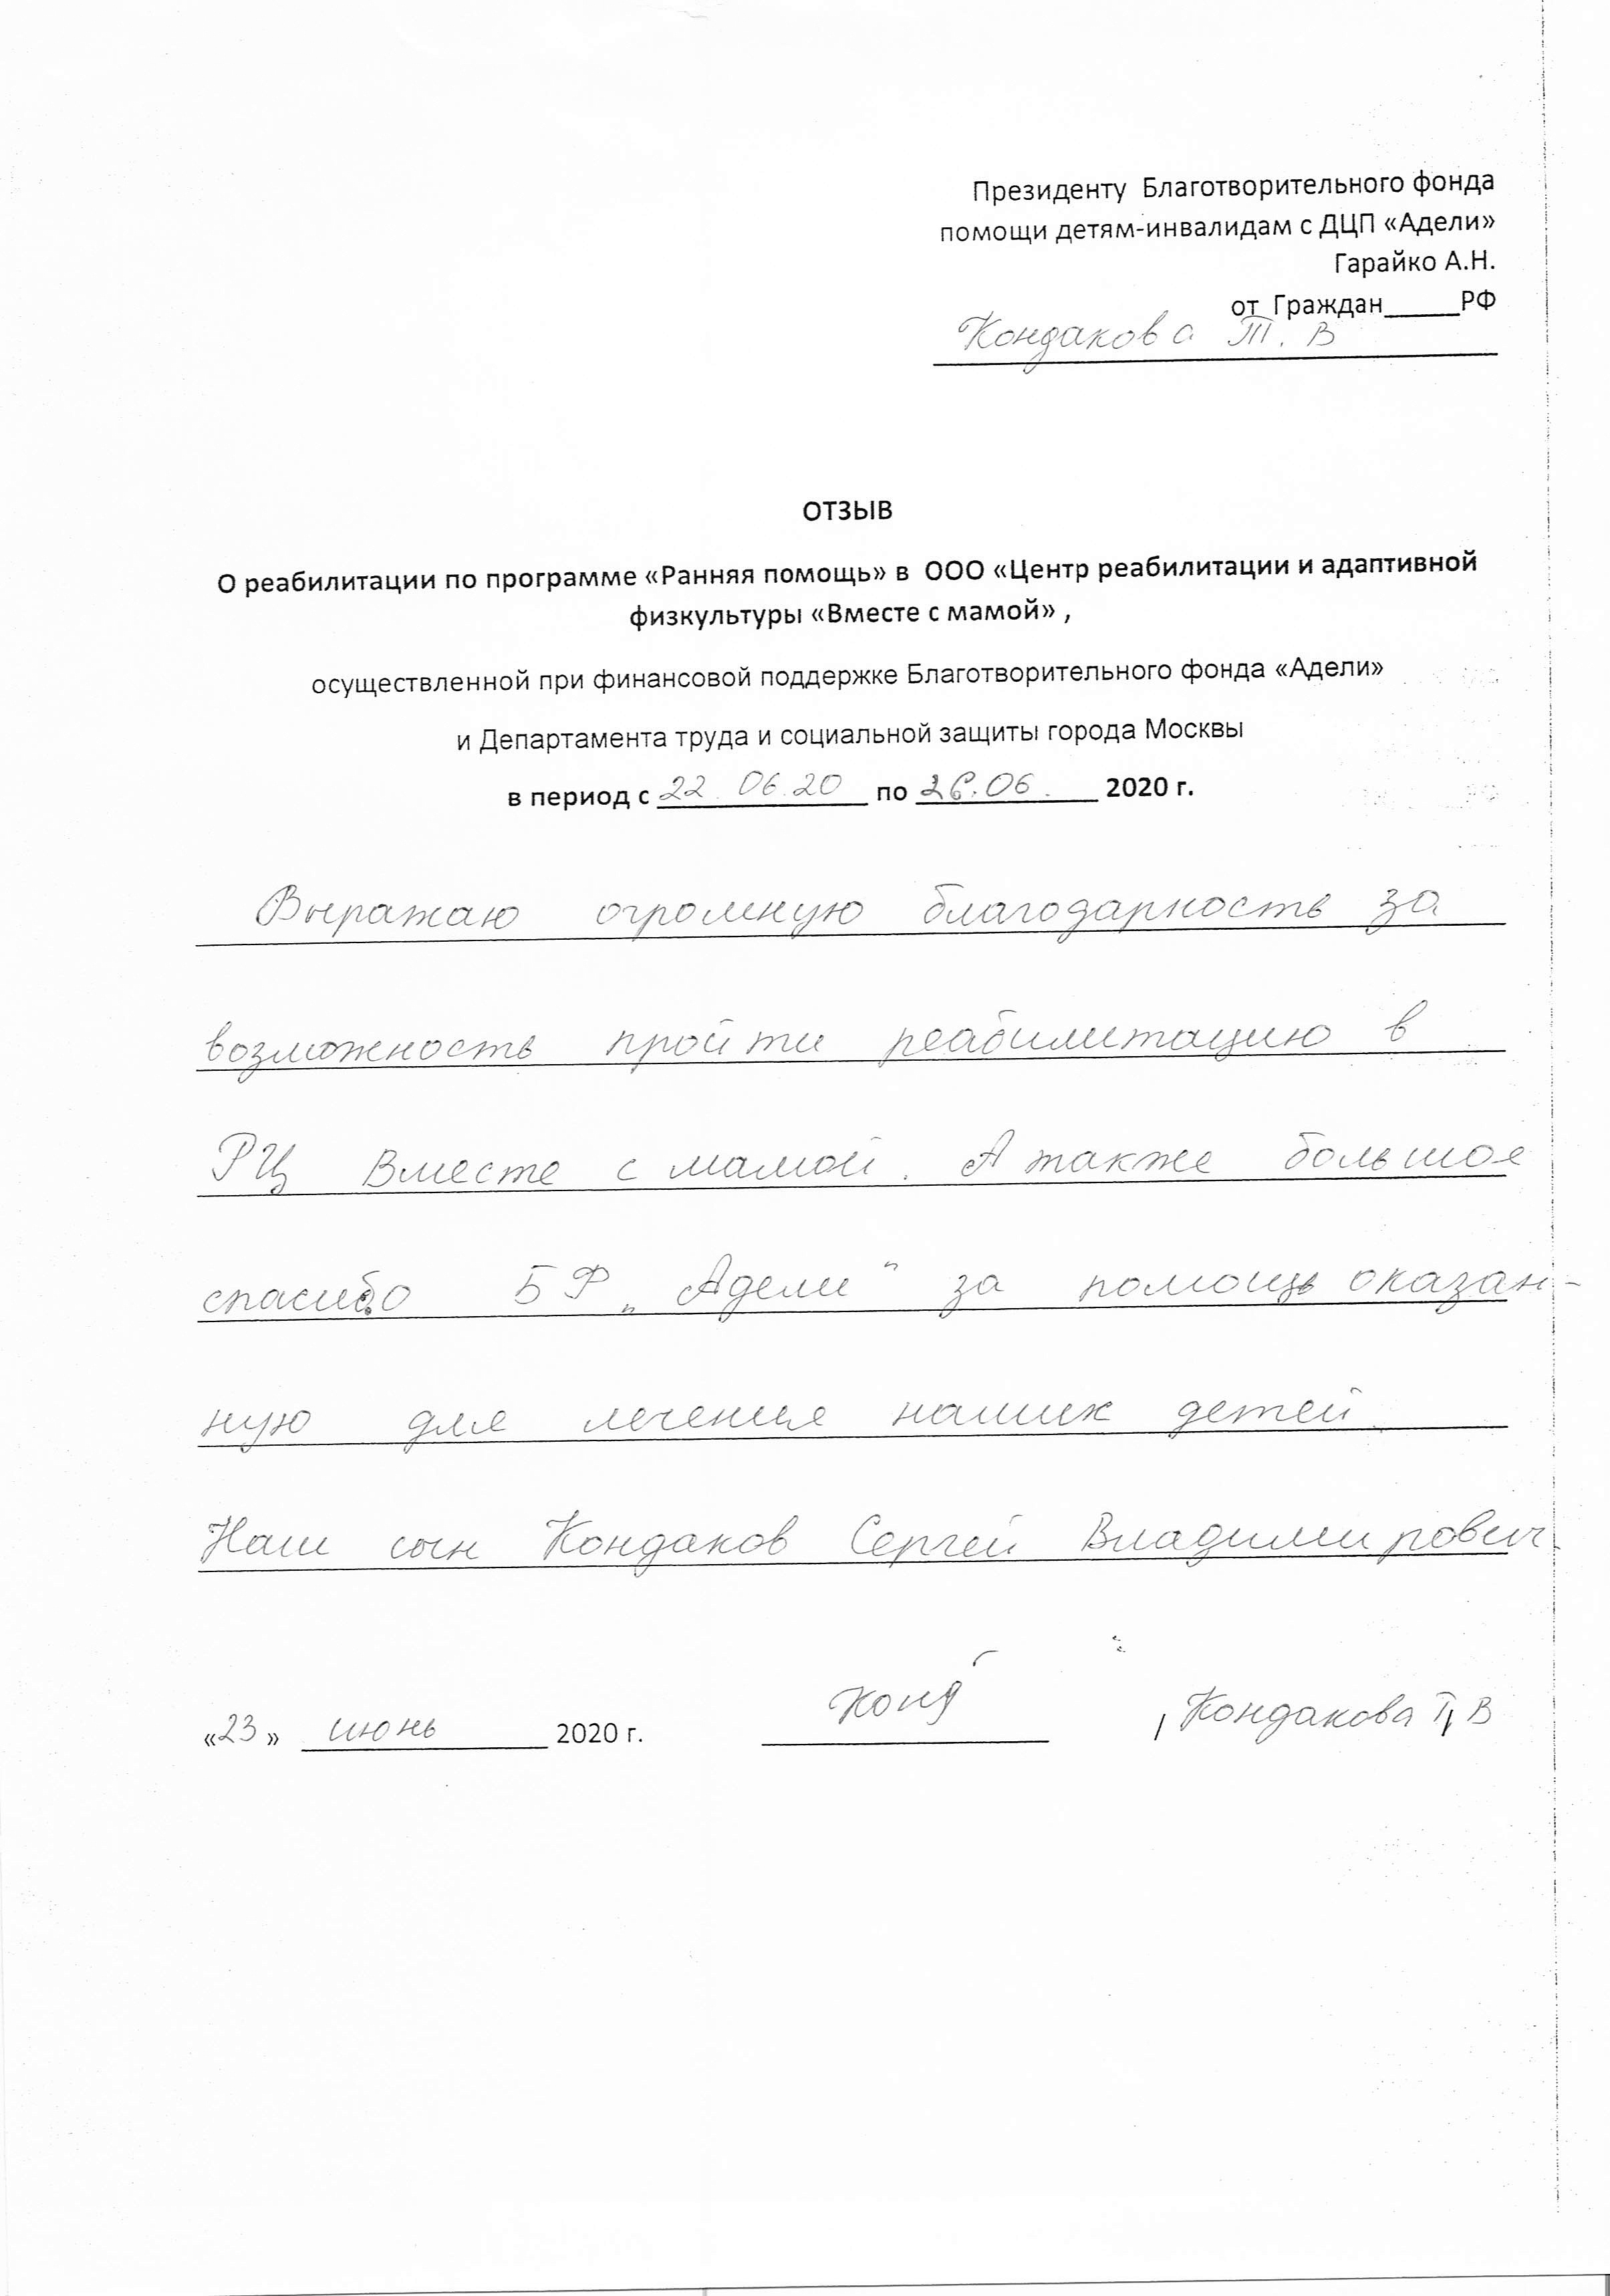 Президенту Благотворительного фонда
помощи детям-инвалидам с ДЦП «Адели»
Гарайко А.Н.
от Граждан_____РФ
Кондакова Т. В
ОТЗЫВ
О реабилитации по программе «Ранняя помощь» в ООО «Центр реабилитации и адаптивной
физкультуры «Вместе с мамой» ,
осуществленной при финансовой поддержке Благотворительного фонда «Адели»
и Департамента труда и социальной защиты города Москвы
в период с 22.06.20 по 26.06. 2020 г.
Выражаю огромную благодарность за
возможность пройти реабилитацию в
РЦ Вместе с мамой. А также большое
спасибо БФ „Адели“ за помощь оказан-
ную для лечения наших детей.
Наш сын Кондаков Сергей Владимирович.
«23» июнь 2020 г. Конд / Кондакова Т, В